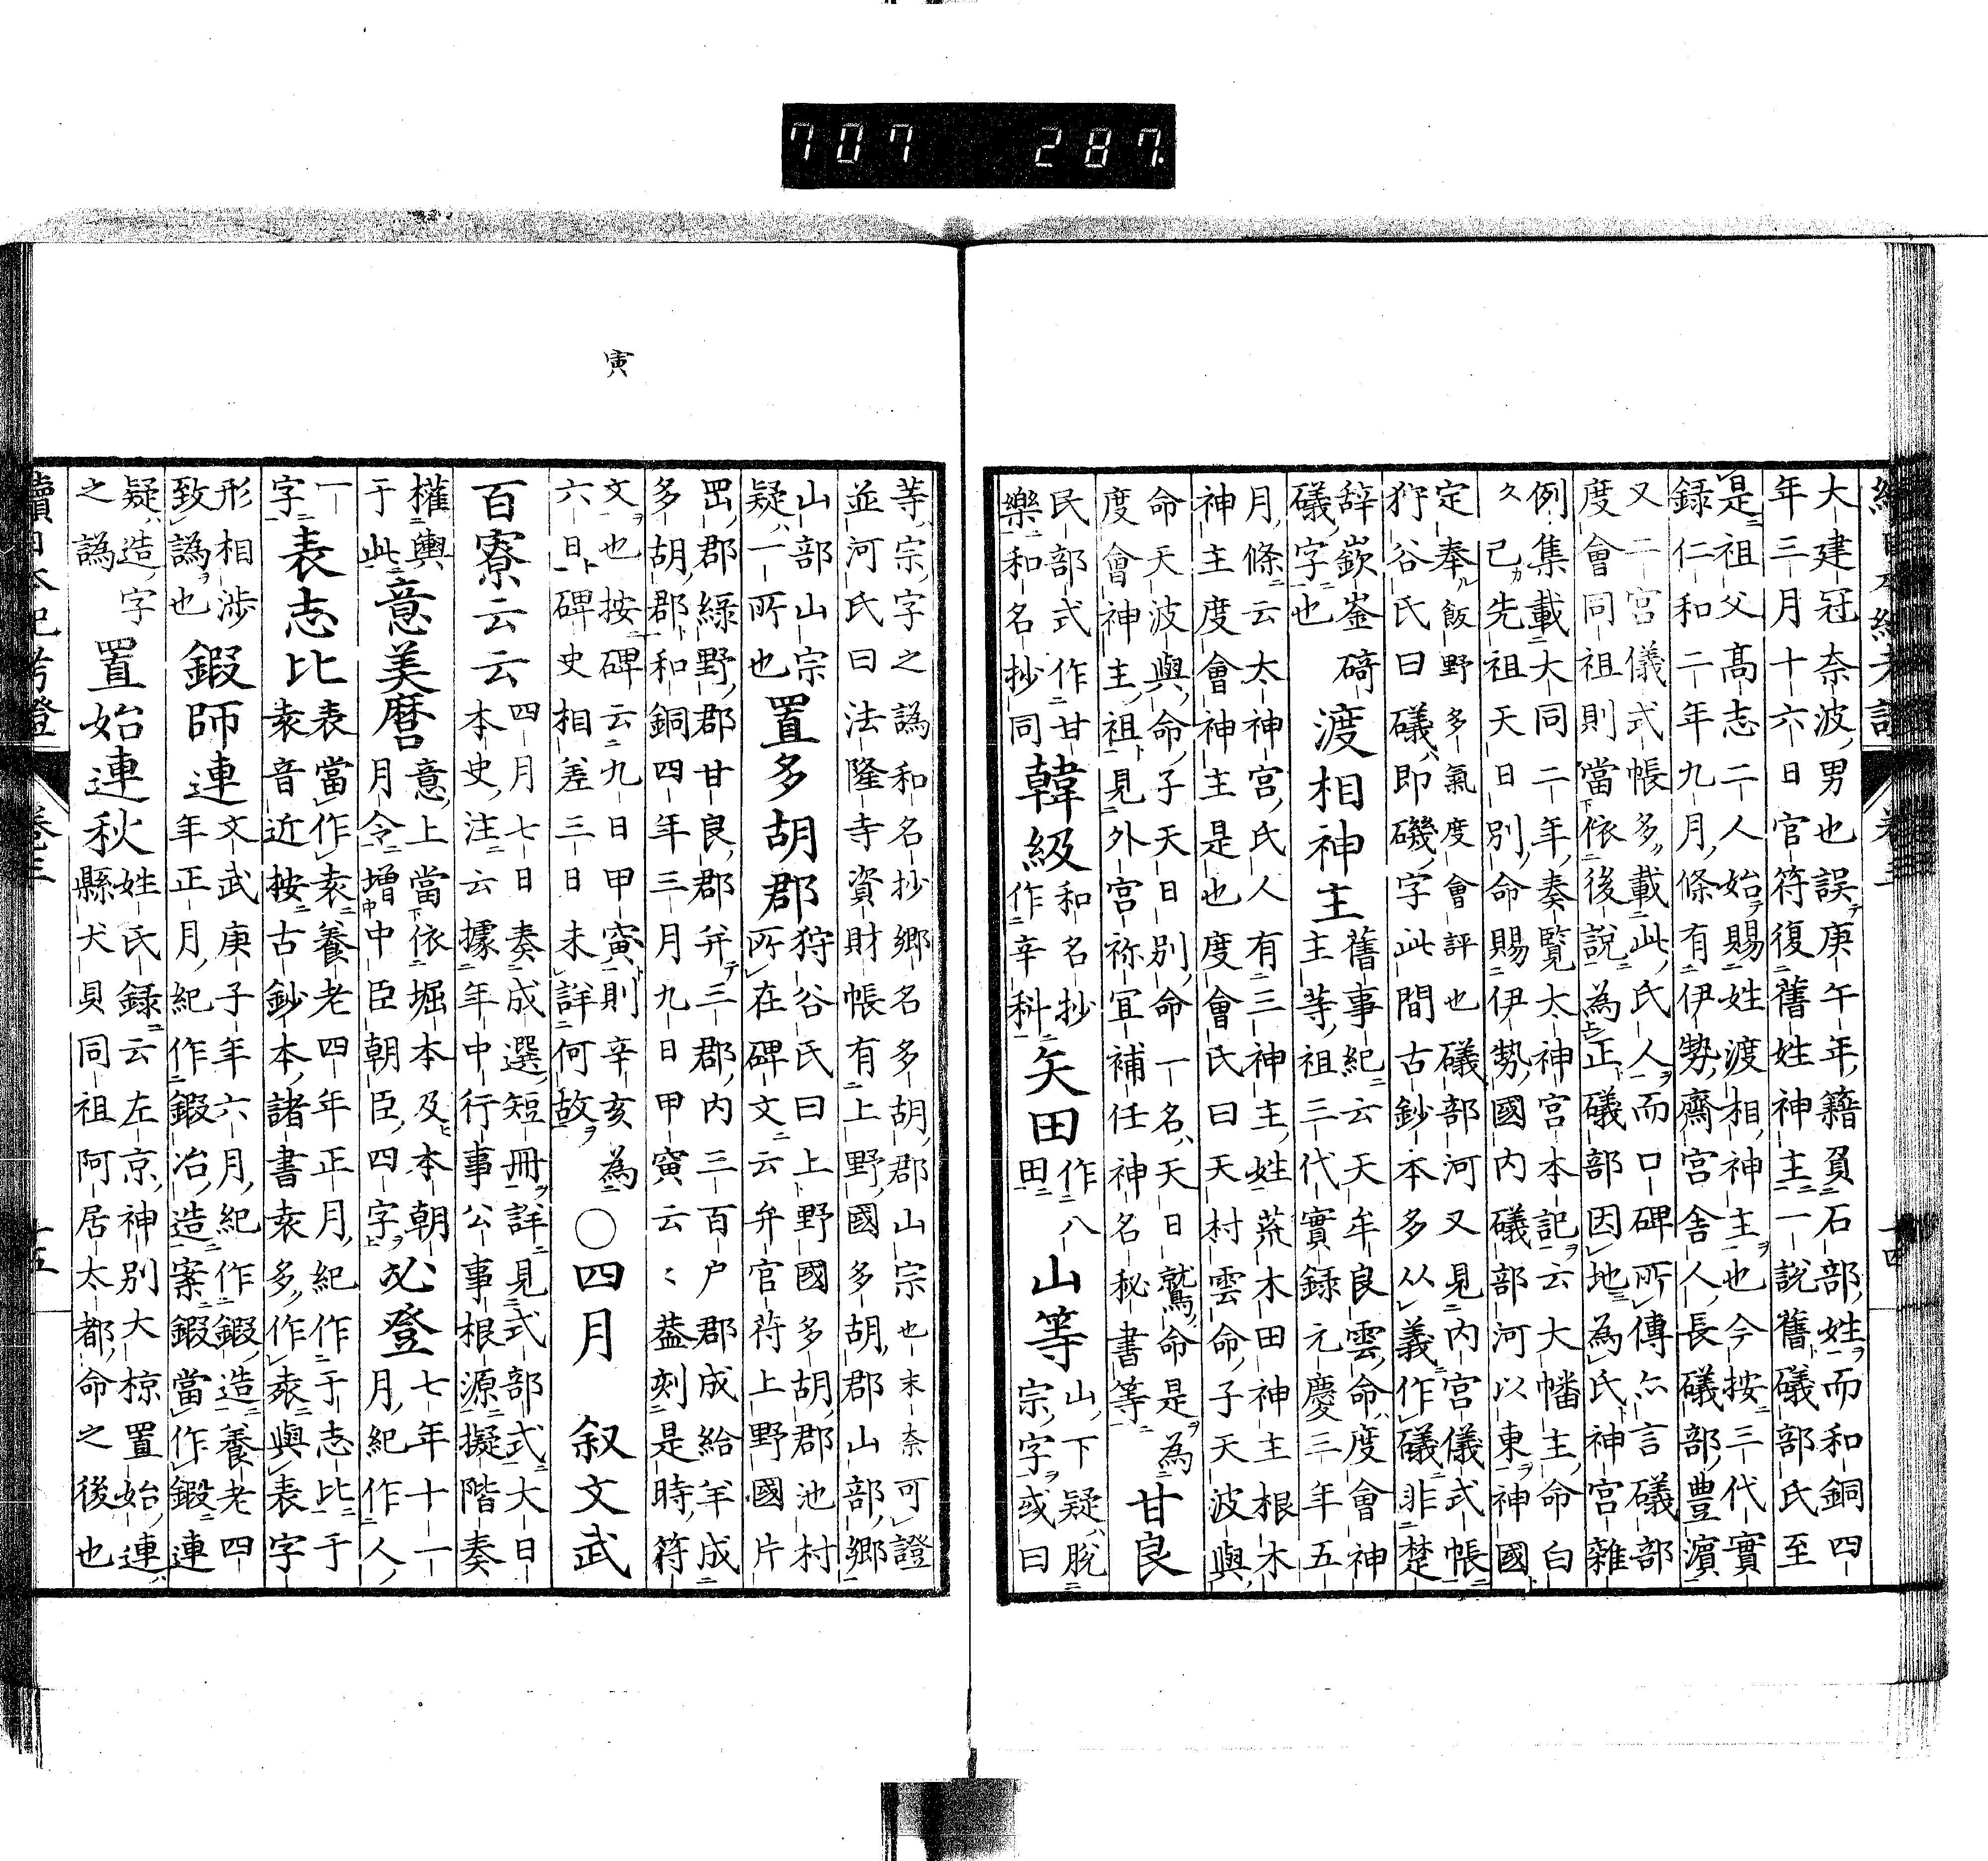 707 287.
大建冠奈波男也誤庚午年籍負石部姓而和銅四
年三月十六日官符復舊姓神主一說舊礒部氏至
是祖父高志二人始賜姓渡相神主也今按三代實
録仁和二年九月條有伊勢齋宮舎人長礒部豊濵
又二宮儀式帳多載此氏人而口碑所傳亦言礒部
度會同祖則當依後說為正礒部因地為氏神宮雜
例集載大同二年奏覽太神宮本記云大幡主命白
久己先祖天日別命賜伊勢國内礒部河以東神國
定奉飯野多氣度會評也礒部河又見内宮儀式帳
狩谷氏曰礒即磯字此間古鈔本多从義作礒非楚
辞嶔崟碕
礒字也
渡相神主
舊事紀云天牟良雲命度會神
主等祖三代實録元慶三年五
月條云太神宮氏人有三神主姓荒木田神主根木
神主度會神主是也度會氏曰天村雲命子天波與
命天波與命子天日別命一名天日鷲命是為
度會神主祖見外宮祢宜補任神名秘書等
甘良
民部式作甘
樂和名抄同
韓級
和名抄
作辛科
矢田
作八
田
山等
山下疑脱
宗字或曰
等宗字之譌和名抄郷名多胡郡山宗也末奈可證
並河氏曰法隆寺資財帳有上野國多胡郡山部郷
山部山宗
疑一所也
置多胡郡
狩谷氏曰上野國多胡郡池村
所在碑文云弁官符上野國片
罡郡緑野郡甘良郡并三郡内三百户郡成給羊成
多胡郡和銅四年三月九日甲寅云〻葢刻是時符
文也按碑云九日甲寅則辛亥為
六日碑史相差三日未詳何故
○四月　叙文武
百寮云云
四月七日奏成選短冊詳見式部式大日
本史注云據年中行事公事根源擬階奏
權輿
于此
意美麿
意上當依堀本及本朝
月令增中臣朝臣四字
必登
七年十一
月紀作人
一
字
表志比
表當作袁養老四年正月紀作于志比于
袁音近按古鈔本諸書袁多作𡊮與表字
形相渉
致譌也
鍜師連
文武庚子年六月紀作鍜造養老四
年正月紀作鍜冶造案鍜當作鍛連
疑造字
之譌
置始連秋
姓氏録云左京神別大椋置始連
縣犬貝同祖阿居太都命之後也
寅
續日本紀考證
卷三
十四
十五